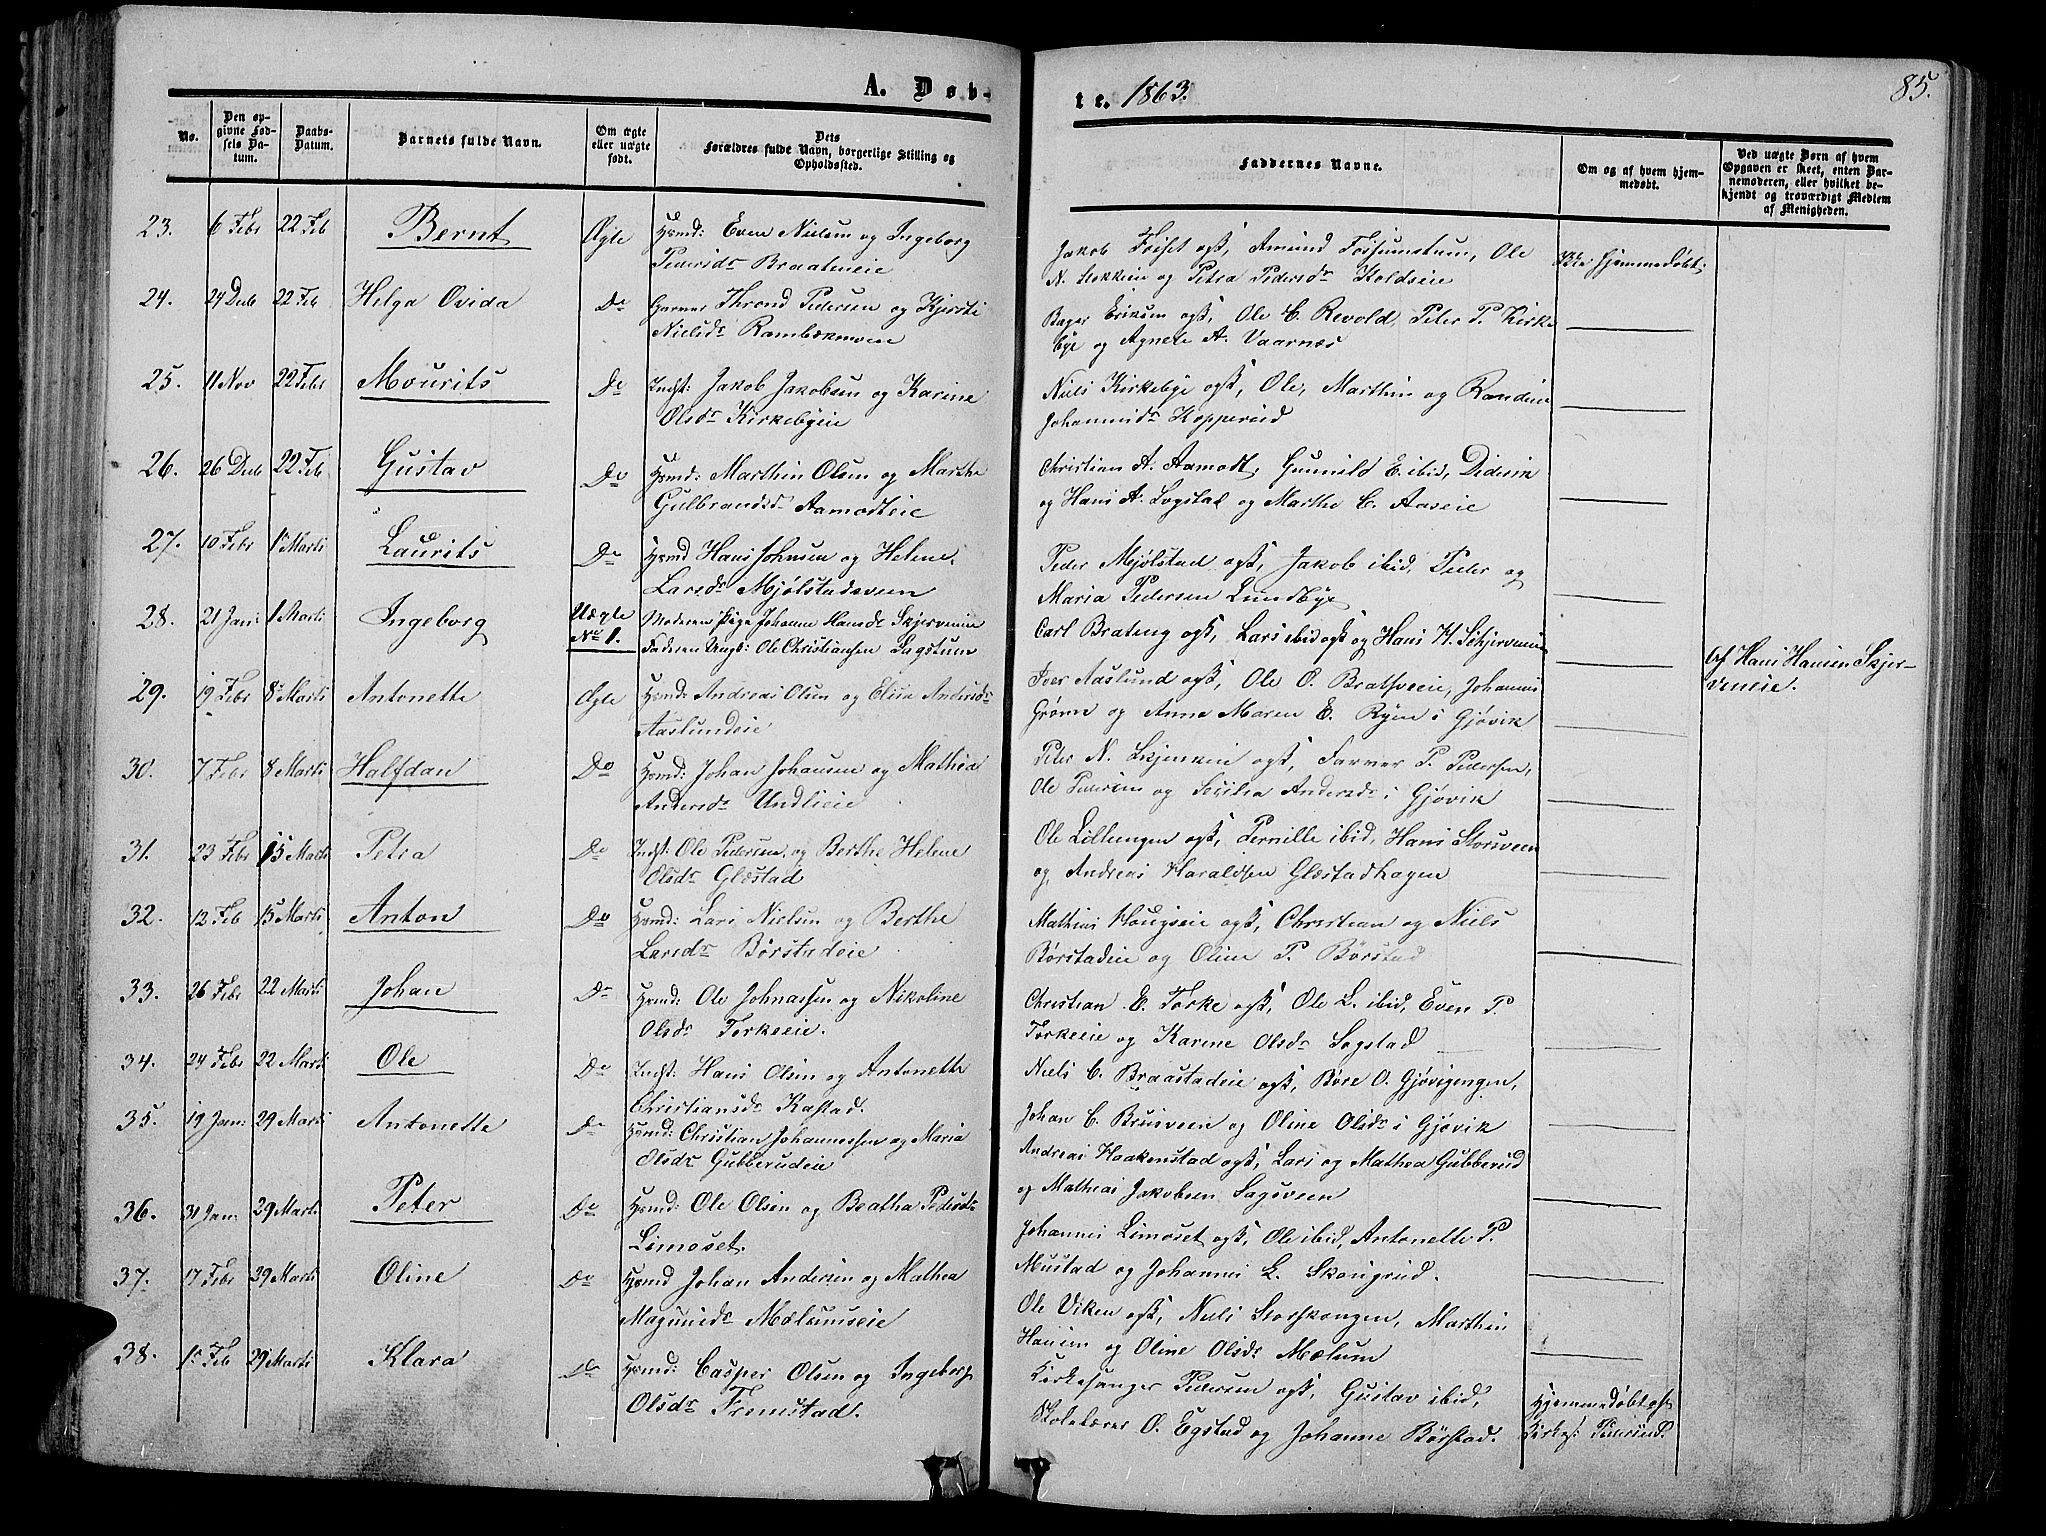 A. Døb-
te. 1863.
85.
No.
Den op-
givne Fød-
sels Da-
tum.
Daabs-
Datum.
Barnets fulde Navn.
Om ægte
eller uægte
født.
Dets
Forældres fulde Navn, borgerlige Stilling og
Opholdssted.
Faddernes Navne.
Om og af hvem hjem-
medøbt.
Ved uægte Børn af hvem
Opgaven er skeet, enten Bar-
nemoderen, eller hvilket be-
kjendt og troværdigt Medlem
af Menigheden.
23. 6 Febr 22 Feb Bernt Ægte Husmd: Even Nielsen og Ingeborg
Pedersdr Braateneie
Jakob Fosset ogsk, Amund Fossumstuen, Ole
N. Stokkeie og Petra Pedersdr Skoldseie
Ikke hjemmedøbt.
24. 24 Decb 22 Feb Helga Ovida Do Garver Thrond Pedersen og Kjersti
Nielsdr Rambækmoen
Bager Eriksen ogsk, Ole C. Revold, Peter P. Kirke
bye og Agnete A. Vaarnæs
25. 11 Nov 22 Febr Mourits Do Indst: Jakob Jakobsen og Karine
Olsdr Kirkebyeie
Niels Kirkebye ogsk, Ole, Marthin og Randine
Johannesdr Hopperud
26. 26 Decb 22 Feb Gustav Do Husmd: Marthin Olsen og Marthe
Gulbrandsdr Aamodteie
Christian A. Aamodt, Gunnild E. ibid, Diderik
og Hans A. Sogstad og Marthe C. Aaseie
27. 10 Febr 1 Marts Laurits Do Husmd Hans Johnsen og Helene
Larsdr Mjølstadsveen
Peder Mjølstad ogsk, Jakob ibid, Peder og
Maria Pedersen Lundbye
28. 21 Jan: 1 Marts Ingeborg Uægte
No 1. Moderen Pige Johanne Hansdr Skjerveneie
Faderen Ungk: Ole Christiansen Sagstuen
Carl Brateng ogsk, Lars ibid ogsk og Hans H. Skjerveneie
Af Hans Hansen Skjer-
veneie.
29. 19 Febr 8 Marts Antonette Ægte Husmd: Andreas Olsen og Elise Andersdr
Aaslundeie
Iver Aaslund ogsk, Ole O. Bratsveeie, Johannes
Grønn og Anne Maren E. Ryen i Gjøvik
30. 7 Febr 8 Marts Halfdan Do Husmd: Johan Johansen og Mathea
Andersdr Undlieie
Peter N. Skjerveneie ogsk, Farver P. Pedersen,
Ole Pedersen og Sesilia Andersdr i Gjøvik
31. 23 Febr 15 Marts Petra Do Indst: Ole Pedersen og Berthe Helene
Olsdr Glæstad
Ole Lilleengen ogsk, Pernille ibid, Hans Storsveen
og Andreas Haraldsen Glæstadhagen
32. 12 Feb 15 Marts Anton Do Husmd: Lars Nielsen og Berthe
Larsdr Børstadeie
Mathias Hougseie ogsk, Christian og Niels
Børstadeie og Oline P. Børstad
33. 26 Febr 22 Marts Johan Do Husmd: Ole Johnassen og Nikoline
Olsdr Torkeeie.
Christian E. Torke ogsk, Ole L. ibid, Even P.
Torkeeie og Karine Olsdr Sogstad
34. 24 Febr 22 Marts Ole Do Indst: Hans Olsen og Antonette
Christiansdr Kastad.
Niels C. Braastadeie ogsk, Børe O. Gjøvigengen,
Johan C. Brusveen og Oline Olsdr i Gjøvik
35. 19 Jan: 29 Marts Antonette Do Husmd: Christian Johannessen og Maria
Olsdr Gubberudeie
Andreas Haakenstad ogsk, Lars og Mathea Gubberud
og Mathias Jakobsen Sagsveen
36. 31 Jan: 29 Marts Peter Do Husmd: Ole Olsen og Beatha Pedersdr
Limoset.
Johannes Limoset ogsk, Ole ibid, Antonette P.
Mustad og Johannes L. Skougrud.
37. 17 Febr 29 Marts Oline Do Husmd Johan Andersen og Mathea
Magnusdr Mælumseie
Ole Viken ogsk, Niels Storskougen, Marthin
Hansen og Oline Olsdr Mælum
38. 1 Feb 29 Marts Klara Do Husmd: Casper Olsen og Ingeborg
Olsdr Fremstad.
Kirkesanger Pedersen ogsk, Gustav ibid,
Skolelærer O. Egstad og Johanne Børstad.
Hjemmedøbt af
Kirkes: Pedersen.